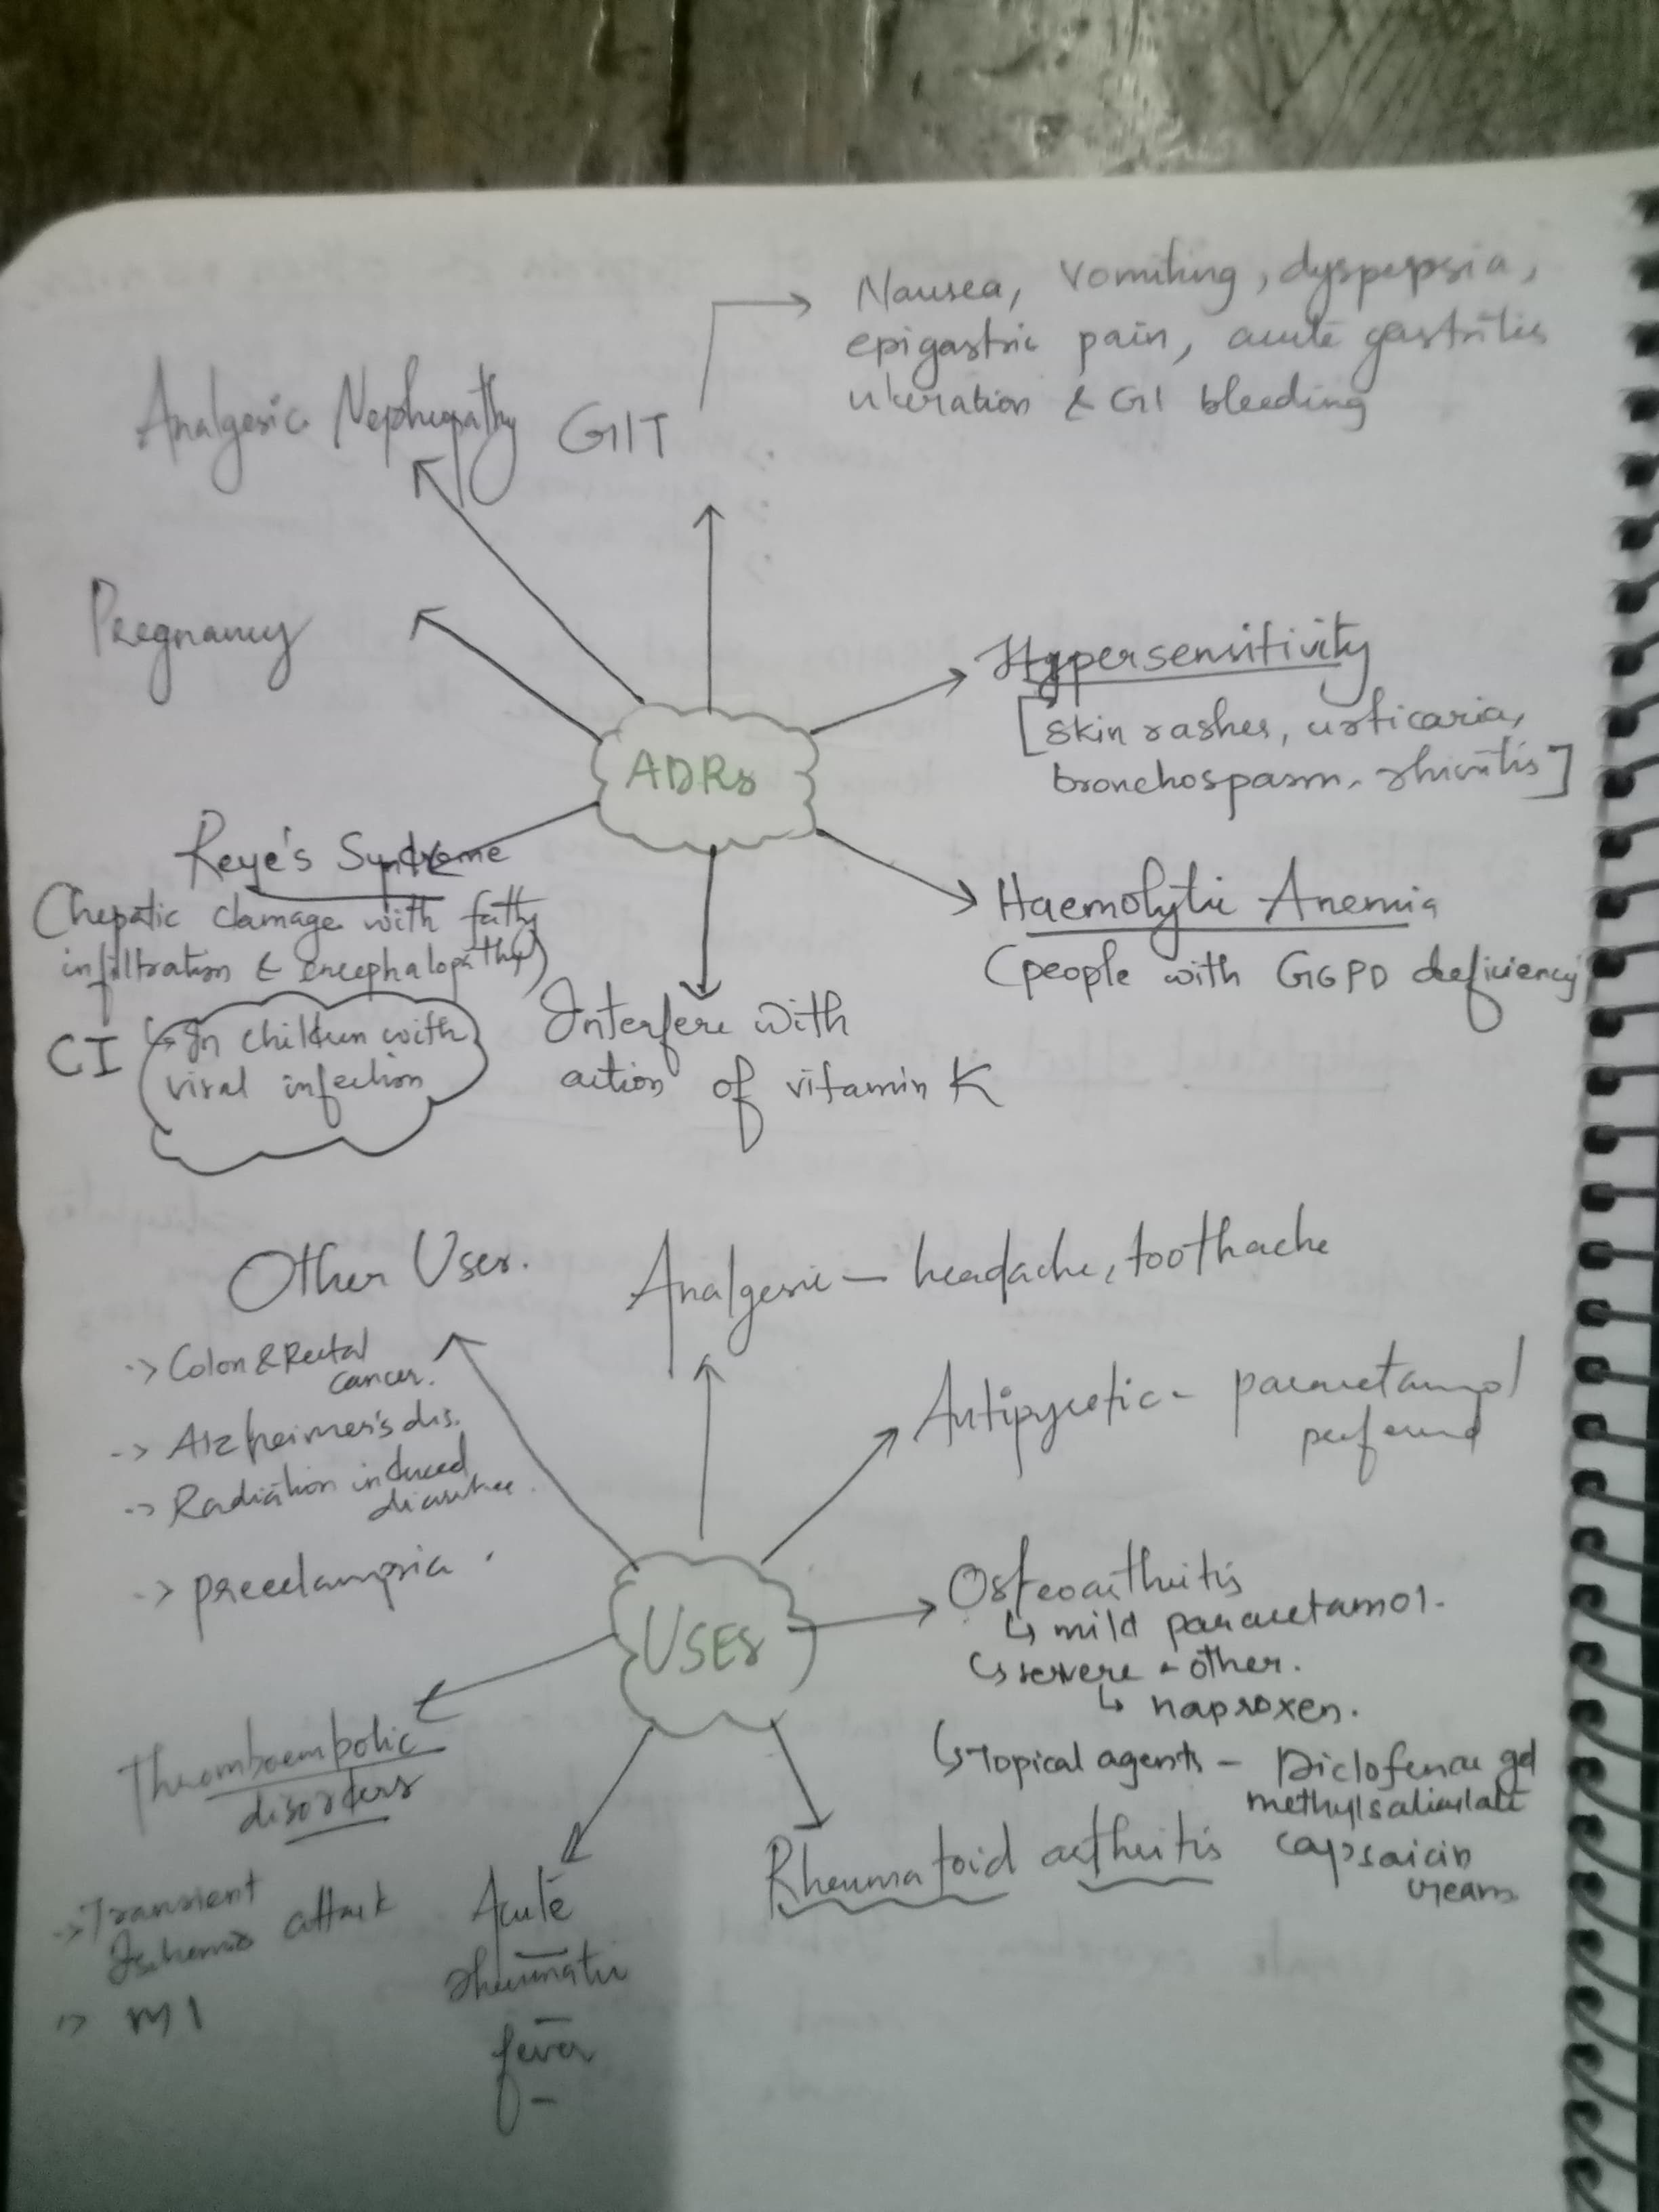 Nausea, Vomiting, dyspepsia,
epigastric pain, acute gastritis
ulceration & GI bleeding
Analgesic Nephropathy
GIT
Pregnancy
Hypersensitivity
[skin rashes, urticaria,
bronchospasm, rhinitis]
ADRs
Reye's Syndrome
(hepatic damage with fatty
infiltration & encephalopathy)
CI
In children with
viral infection
Haemolytic Anemia
(people with G6PD deficiency
Interfere with
action of vitamin K
Other Uses.
-> Colon & Rectal
cancer.
-> Alzheimer's dis.
-> Radiation induced
diarrhea.
-> preeclampsia.
Analgesic - headache, toothache
Antipyretic - paracetamol
preferred
USEs
Osteoarthritis
↳ mild paracetamol.
↳ severe - other.
↳ naproxen.
↳ Topical agents - Diclofenac gel
methylsalicylate
capsaicin
cream
Rheumatoid arthritis
Acute
rheumatic
fever
Thromboembolic
disorders
-> Transient
Ischemic attack
-> MI